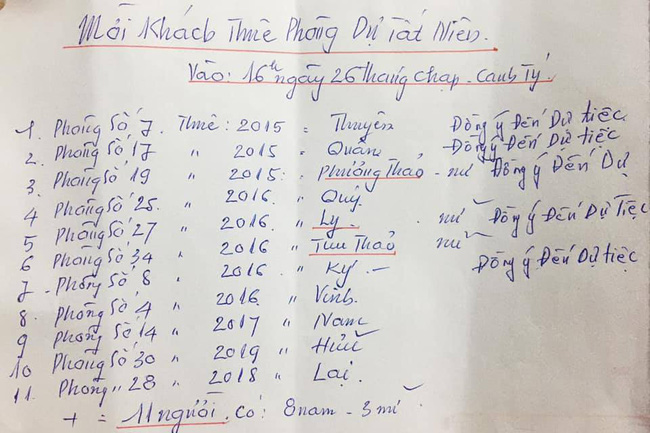 Mời Khách Thuê Phòng Dự Tất Niên.
Vào: 16h ngày 26 Tháng Chạp. Canh Tý.
1. Phòng Số 7. Thuê: 2015 = Thuyên Đồng ý Đến Dự tiệc
2. Phòng Số 17 " 2015 " Quân Đồng ý Đến Dự tiệc
3. Phòng Số 19 " 2015: Phương Thảo - nữ Đồng ý Đến Dự
4 Phòng Số 25 " 2016. " Quý.
5 Phòng Số 27 " 2016. " Ly. nữ Đồng ý Đến Dự Tiệc
6 Phòng Số 34 " 2016 " Thu Thảo nữ
7 - Phòng Số 8 " 2016. " Ký. - Đồng ý Đến Dự tiệc
8. Phòng Số 4 " 2016 " Vinh.
9 Phòng Số 14 " 2017 " Nam
10 Phòng Số 30 " 2019 " Hữu
11. Phòng " 28 " 2018 " Lại.
+ = 11 người. Có: 8 nam - 3 nữ